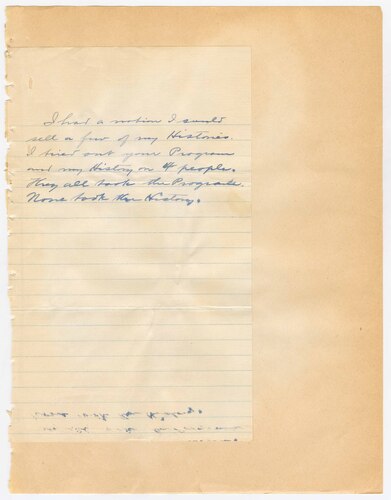 I had a notion I could
sell a few of my Histories.
I tried out your Program
and my History on 4 people.
They all took the Program.
None took the History.